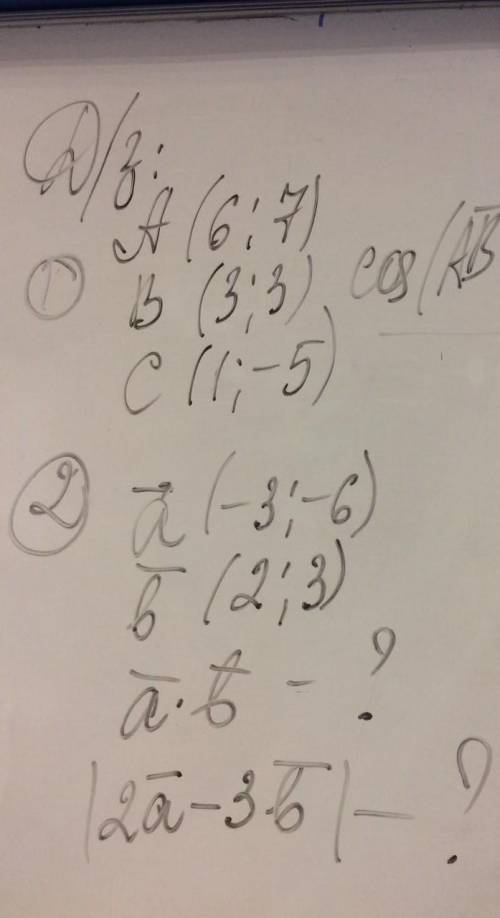 Д/з:
① A (6; 7)
B (3; 3) cos(A̅B̅
C (1; -5)
② a̅ (-3; -6)
b̅ (2; 3)
a̅ · b̅ - ?
|2a̅ - 3·b̅| - ?